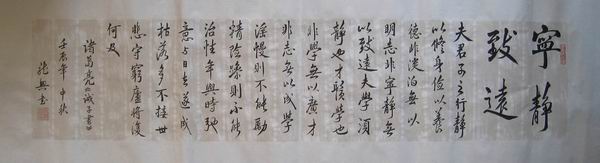 寧靜
致遠
夫君子之行靜
以修身儉以養
德非淡泊無以
明志非寧靜無
以致遠夫學須
靜也才須學也
非學無以廣才
非志無以成學
淫慢則不能勵
精險躁則不能
治性年與時馳
意與日去遂成
枯落多不接世
悲守窮廬將復
何及
諸葛亮《誡子書》
壬辰年 中秋